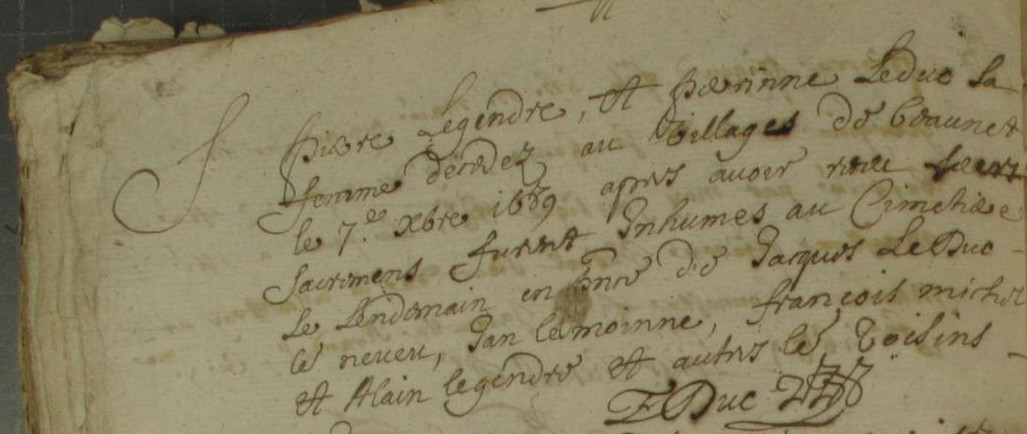 pierre Legendre, et perrinne Leduc sa
femme decedez au village de beaunet
le 7.e xbre 1689 apres avoir receu leurs
sacremens furent Inhumes au Cimetiere
le lendemain en pnce de Jacques Le Duc
le neveu, Jan lemoinne, françois michel
et Alain legendre et autres les voisins
F Duc